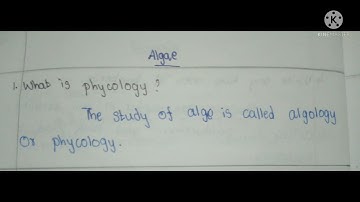 KINEMASTER
Algae
1. What is phycology?
The study of alge is called algology
or phycology.